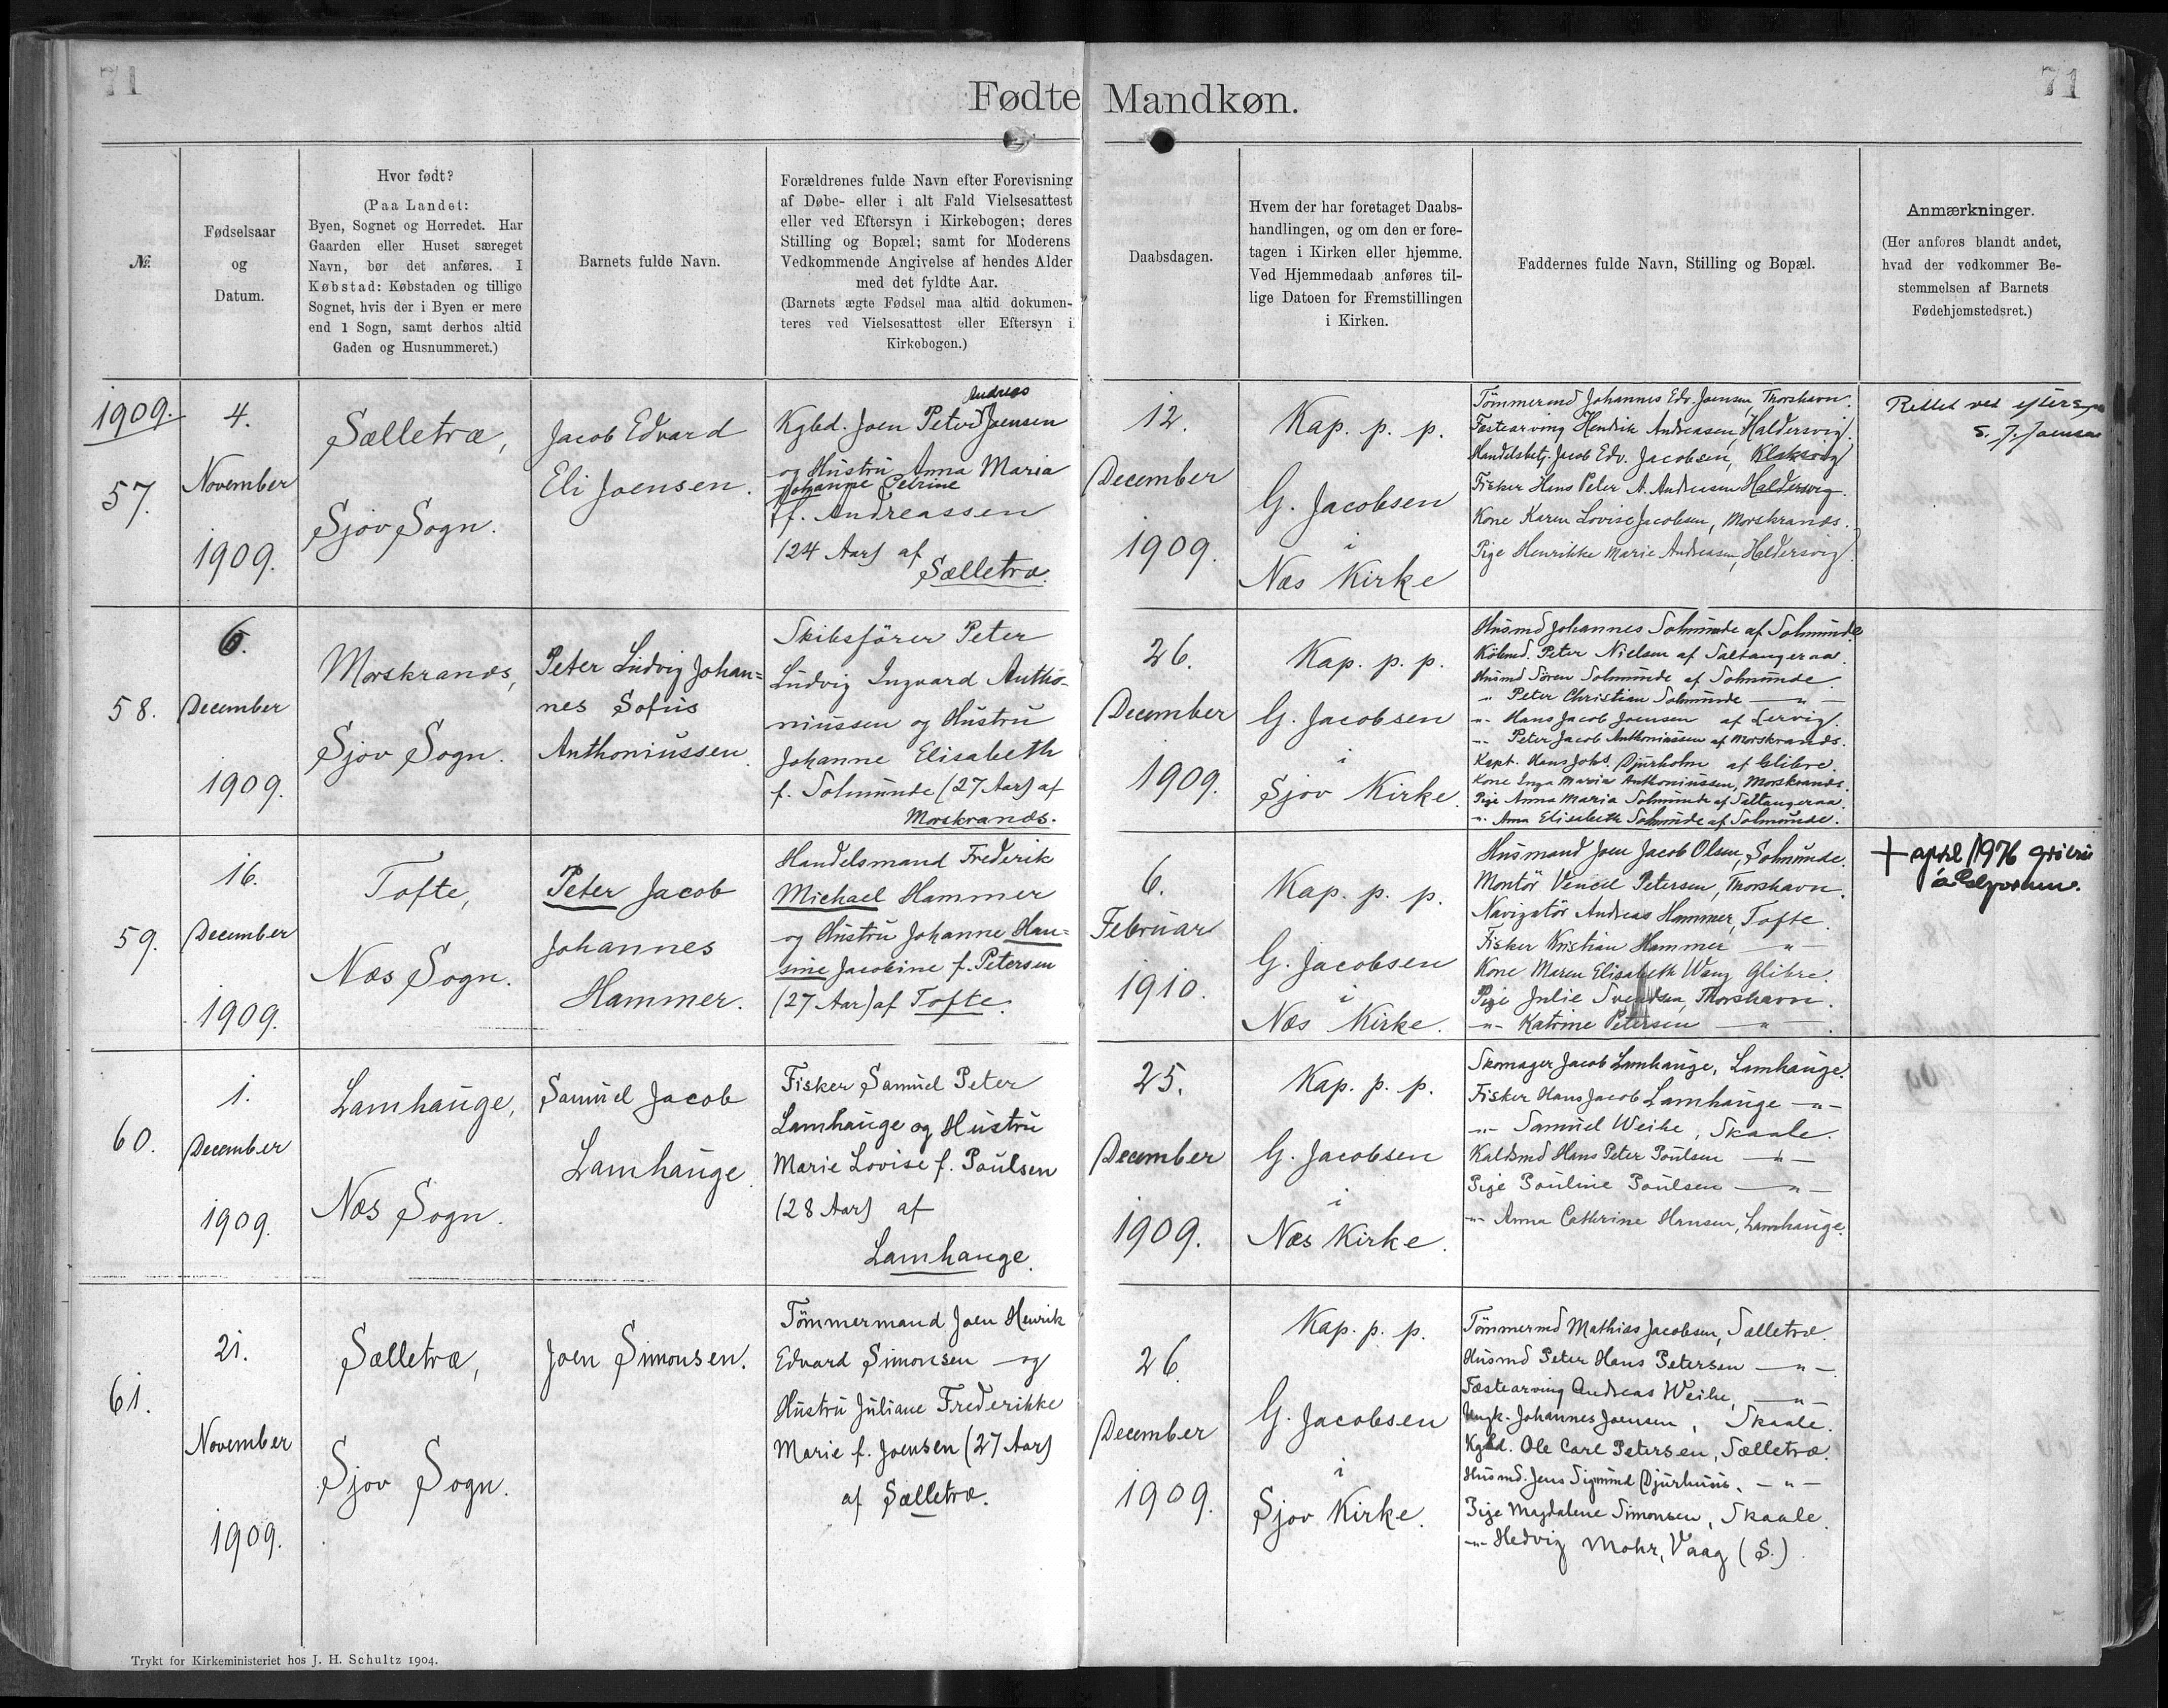 71
Fødte Mandkøn.
71
№
Fødselsaar
og
Datum.
Hvor født?
(Paa Landet:
Byen, Sognet og Herredet. Har
Gaarden eller Huset særeget
Navn, bør det anføres. I
Købstad: Købstaden og tillige
Sognet, hvis der i Byen er mere
end 1 Sogn, samt derhos altid
Gaden og Husnummeret.)
Barnets fulde Navn.
Forældrenes fulde Navn efter Forevisning
af Døbe- eller i alt Fald Vielsesattest
eller ved Eftersyn i Kirkebogen; deres
Stilling og Bopæl; samt for Moderens
Vedkommende Angivelse af hendes Alder
med det fyldte Aar.
(Barnets ægte Fødsel maa altid dokumen-
teres ved Vielsesattest eller Eftersyn i
Kirkebogen.)
Daabsdagen.
Hvem der har foretaget Daabs-
handlingen, og om den er fore-
tagen i Kirken eller hjemme.
Ved Hjemmedaab anføres til-
lige Datoen for Fremstillingen
i Kirken.
Faddernes fulde Navn, Stilling og Bopæl.
Anmærkninger.
(Her anføres blandt andet,
hvad der vedkommer Be-
stemmelsen af Barnets
Fødehjemstedsret.)
1909.
57.
4.
November
1909.
Sælletræ,
Sjov Sogn.
Jacob Edvard
Eli Joensen.
Andreas
Kgbd. Joen Peter Joensen
og Hustru Anna Maria
Johanne Petrine
f. Andreassen
(24 Aar) af
Sælletræ.
12.
December
1909.
Kap. p. p.
G. Jacobsen
i
Næs Kirke
Tömmermd Johannes Edv. Joensen, Thorshavn.
Fæstearving Hendrik Andreasen, Haldersvig.
Handelsbetj. Jacob Edv. Jacobsen, Klaksvig
Fisker Hans Peter A. Andreasen Haldersvig.
Kone Karen Lovise Jacobsen, Morskrands.
Pige Henrikke Marie Andreasen, Haldersvig.
Rettet ved eftersyn
S. J. Joensen
58.
6.
December
1909.
Morskrands,
Sjov Sogn.
Peter Ludvig Johan=
nes Sofus
Anthoniussen.
Skibsförer Peter
Ludvig Ingvard Antho-
niussen og Hustru
Johanne Elisabeth
f. Solmunde (27 Aar) af
Morskrands.
26.
December
1909.
Kap. p. p.
G. Jacobsen
i
Sjov Kirke.
Husmd Johannes Solmunde af Solmunde
Köbmd. Peter Nielsen af Saltangeraa.
Husmd Sören Solmunde af Solmunde.
" Peter Christian Solmunde — " —
-"- Hans Jacob Joensen af Lervig.
-"- Peter Jacob Anthoniussen af Morskrands.
Kapt. Hans Johs. Djurholm af Glibre.
Kone Inga Maria Anthoniussen, Morskrands.
Pige Anna Maria Solmunde af Saltangeraa.
-"- Anna Elisabeth Solmunde af Solmunde.
59.
16.
December
1909.
Tofte,
Næs Sogn.
Peter Jacob
Johannes
Hammer.
Handelsmand Frederik
Michael Hammer
og Hustru Johanne Han=
sine Jacobine f. Petersen
(27 Aar) af Tofte.
6.
Februar
1910.
Kap. p. p.
G. Jacobsen
i
Næs Kirke.
Husmand Joen Jacob Olsen, Solmunde.
Montör Vencil Petersen, Thorshavn.
Navigatör Andreas Hammer, Tofte.
Fisker Kristian Hammer — " —
Kone Maren Elisabeth Wang Glibre.
Pige Julie Svendsen, Thorshavn.
-"- Katrine Petersen — " —.
+ april 1976
60.
1.
December
1909.
Lamhauge,
Næs Sogn.
Samuel Jacob
Lamhauge.
Fisker Samuel Peter
Lamhauge og Hustru
Marie Lovise f. Poulsen
(28 Aar) af
Lamhauge.
25.
December
1909.
Kap. p. p.
G. Jacobsen
i
Næs Kirke.
Skomager Jacob Lamhauge, Lamhauge.
Fisker Hans Jacob Lamhauge — " —
-"- Samuel Weihe, Skaale.
Kaldsmd Hans Peter Poulsen — " —
Pige Pouline Poulsen — " —
-"- Anna Cathrine Hansen, Lamhauge.
61.
21.
November
1909.
Sælletræ,
Sjov Sogn.
Joen Simonsen.
Tömmermand Joen Henrik
Edvard Simonsen og
Hustru Juliane Frederikke
Marie f. Joensen (27 Aar)
af Sælletræ.
26.
December
1909.
Kap. p. p.
G. Jacobsen
i
Sjov Kirke.
Tömmermd Mathias Jacobsen, Sælletræ.
Husmd Peter Hans Petersen — " —.
Fæstearving Andreas Weihe, — " —
Ungk. Johannes Joensen, Skaale.
Kgbd. Ole Carl Petersen, Sælletræ.
Husmd. Jens Sigmund Djurhuus. — " —
Pige Magdalene Simonsen, Skaale.
-"- Hedvig Mohr, Vaag (S.)
Trykt for Kirkeministeriet hos J. H. Schultz 1904.